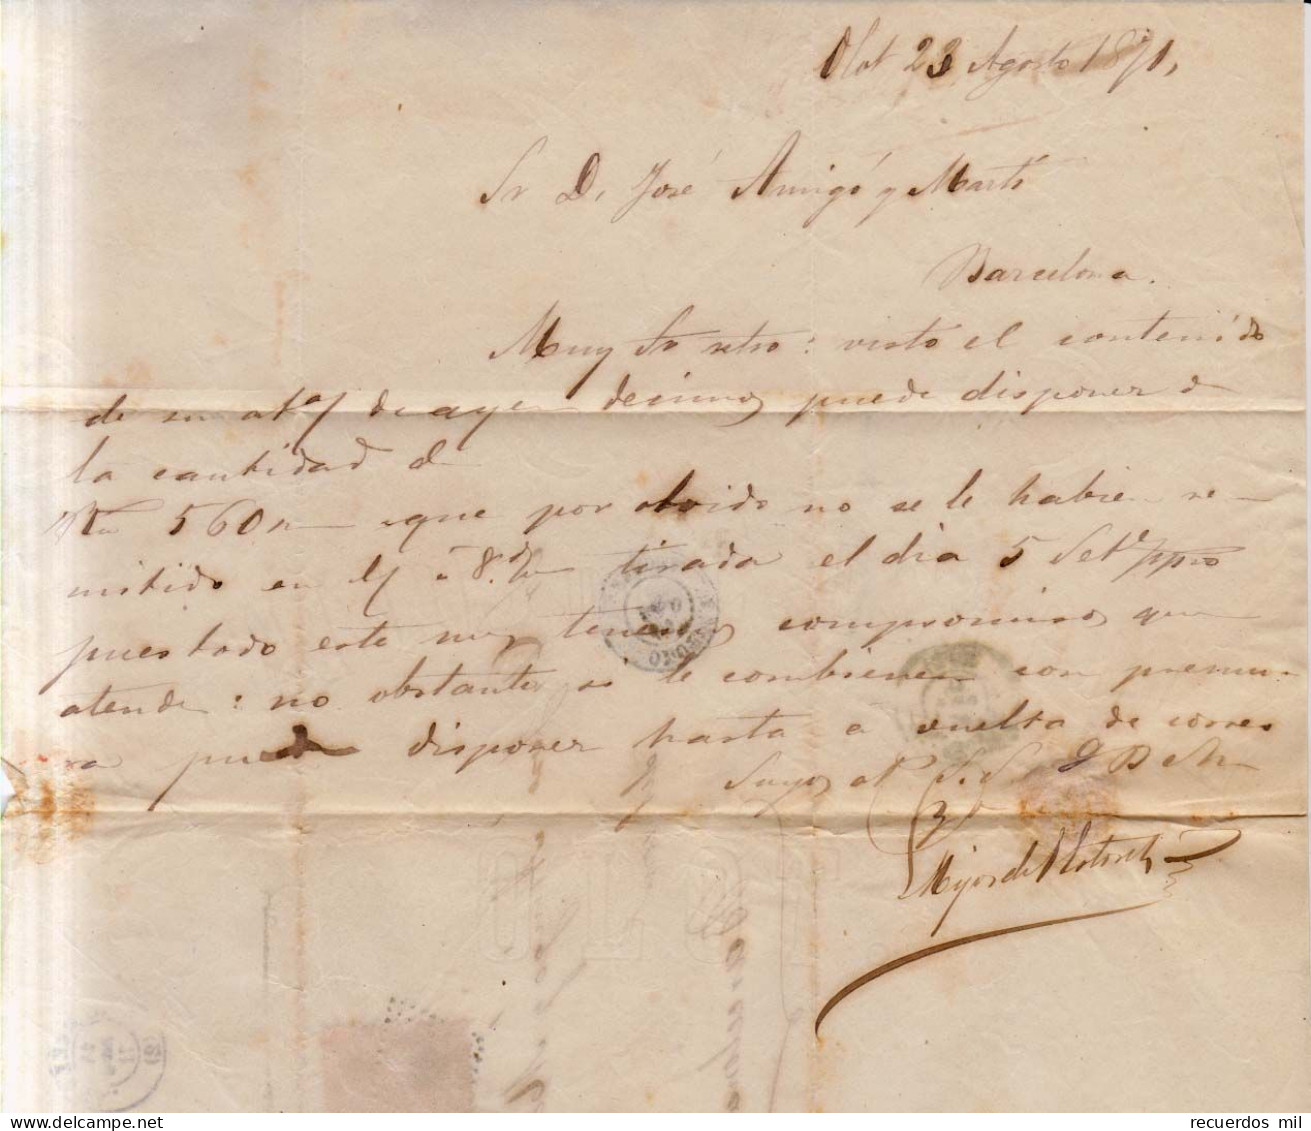 Olot 23 Agosto 1871,
Sr D. José Amigó y Martí
Barcelona.
Muy Sr ntro: visto el contenido
de su atª de ayer decimos puede disponer de
la cantidad de
Rvn 560 que por olvido no se le habien re-
mitido en tirada el dia 5 Set.e ppmo
puestado este muy tenemos compromisos que
atender: no obstante si le combienen con premu-
ra puede disponer hasta a vuelta de correo
Suyos at S. S. Q B S M
Hijos de
OLOT
recuerdos mil
www.delcampe.net